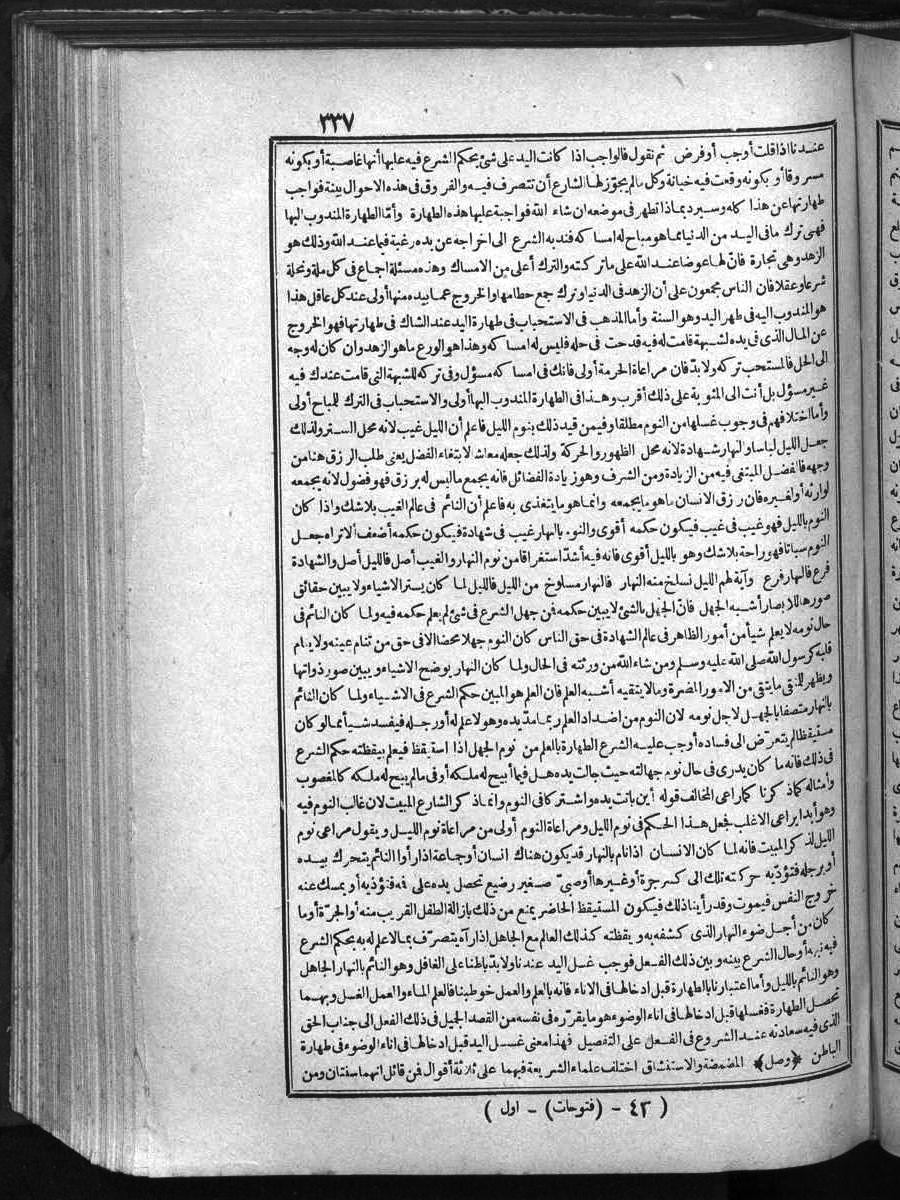 ٣٣٧
عندنا اذا قلت أوجب أوفرض ثم نقول فالواجب اذا كانت اليد على شئ يحكم الشرع فيه عليها أنها غاصبة أو بكونه
مسروقا أو بكونه وقعت فيه خيانة وكل مالم يجوز لها الشارع أن تتصرف فيه والفروق فى هذه الاحوال بينة فواجب
طهارتها عن هذا كله وسيرد بماذا تطهر فى موضعه ان شاء الله فواجبة عليها هذه الطهارة وأما الطهارة المندوب اليها
فهى ترك مافى اليد من الدنيا مما هو مباح له امساكه فندبه الشرع الى اخراجه عن يده رغبة فيما عند الله وذلك هو
الزهد وهى تجارة فان لها عوضا عند الله على ماتركته والترك أعلى من الامساك وهذه مسئلة اجماع فى كل ملة ونحلة
شرعا وعقلا فان الناس مجمعون على أن الزهد فى الدنيا وترك جمع حطامها والخروج عما بيده منها أولى عند كل عاقل هذا
هو المندوب اليه فى طهر اليد وهو السنة وأما المذهب فى الاستحباب فى طهارة اليد عند الشاك فى طهارتها فهو الخروج
عن المال الذى فى يده لشبهة قامت له فيه قدحت فى حله فليس له امساكه وهذا هو الورع ماهو الزهد وان كان له وجه
الى الحل فالمستحب تركه ولابد فان مراعاة الحرمة أولى فانك فى امساكه مسؤل وفى تركه للشبهة التى قامت عندك فيه
غير مسؤل بل أنت الى المثوبة على ذلك أقرب وهذا فى الطهارة المندوب اليها أولى والاستحباب فى الترك للمباح أولى
وأما اختلافهم فى وجوب غسلها من النوم مطلقا وفيمن قيد ذلك بنوم الليل فاعلم أن الليل غيب لانه محل الستر ولذلك
جعل الليل لباسا والنهار شهادة لانه محل الظهور والحركة ولذلك جعله معاشا لابتغاء الفضل يعنى طلب الرزق هنا من
وجهه فالفضل المبتغى فيه من الزيادة ومن الشرف وهو زيادة الفضائل فانه يجمع ما ليس له برزق فهو فضول لانه يجمعه
لوارثه أو لغيره فان رزق الانسان ماهو ما يجمعه وانما هو ما يتغذى به فاعلم أن النائم فى عالم الغيب بلاشك واذا كان
النوم بالليل فهو غيب فى غيب فيكون حكمه أقوى والنوم بالنهار غيب فى شهادة فيكون حكمه أضعف ألا تراه جعل
النوم سباتا فهو راحة بلاشك وهو بالليل أقوى فانه فيه أشد استغراقا من نوم النهار والغيب أصل فالليل أصل والشهادة
فرع فالنهار فرع وآية لهم الليل نسلخ منه النهار فالنهار مسلوخ من الليل فالليل لما كان يستر الاشياء ولا يبين حقائق
صورها للابصار أشبه الجهل فان الجهل بالشئ لا يبين حكمه فمن جهل الشرع فى شئ لم يعلم حكمه فيه ولما كان النائم فى
حال نومه لا يعلم شيأ من أمور الظاهر فى عالم الشهادة فى حق الناس كان النوم جهلا محضا الا فى حق من تنام عينه ولا ينام
قلبه كرسول الله صلى الله عليه وسلم ومن شاء الله من ورثته فى الحال ولما كان النهار يوضح الاشياء ويبين صور ذواتها
ويظهر للمتقى ما يتقى من الامور المضرة وما لا يتقيه أشبه العلم فان العلم هو المبين حكم الشرع فى الاشياء ولما كان النائم
بالنهار متصفا بالجهل لاجل نومه لان النوم من أضداد العلم ربما مد يده وهو لا علم له أو رجله فيفسد شيأ مما لو كان
مستيقظا لم يتعرض الى فساده أوجب عليه الشرع الطهارة بالعلم من نوم الجهل اذا استيقظ فيعلم بيقظته حكم الشرع
فى ذلك فانه ما كان يدرى فى حال نوم جهالته حيث جالت يده هل فيما أبيح له ملكه أو فى مالم يبح له ملكه كالمغصوب
وأمثاله كما ذكرنا كما راعى المخالف قوله أين باتت يده واشتركا فى النوم وانما ذكر الشارع المبيت لان غالب النوم فيه
وهو أبدا يراعى الاغلب فجعل هذا الحكم فى نوم الليل ومراعاة النوم أولى من مراعاة نوم الليل ويقول مراعى نوم
الليل لذكر المبيت فانه لما كان الانسان اذا نام بالنهار قد يكون هناك انسان أو جماعة اذا رأوا النائم يتحرك بيده
أو برجله فتؤديه حركته تلك الى كسر جرة أو غيرها أو صبى صغير رضيع تحصل يده على فمه فتؤذيه أو يمسك عنه
خروج النفس فيموت وقد رأينا ذلك فيكون المستيقظ الحاضر يمنع من ذلك بازالة الطفل القريب منه أو الجرة أو ما
كان من أجل ضوء النهار الذى كشفه به ويقظته كذلك العالم مع الجاهل اذا رآه يتصرف بما لا علم له به بحكم الشرع
فيه نبهه أو حال الشرع بينه وبين ذلك الفعل فوجب غسل اليد عندنا ولابد باطنا على الغافل وهو النائم بالنهار الجاهل
وهو النائم بالليل وأما اعتبارنا بالطهارة قبل ادخالها فى الاناء فانه بالعلم والعمل خوطبنا فالعلم الماء والعمل الغسل وبهما
تحصل الطهارة فغسلها قبل ادخالها فى اناء الوضوء هو ما يقرره فى نفسه من القصد الجميل فى ذلك الفعل الى جناب الحق
الذى فيه سعادته عند الشروع فى الفعل على التفصيل فهذا معنى غسل اليد قبل ادخالها فى اناء الوضوء فى طهارة
الباطن ﴿وصل﴾ المضمضة والاستنشاق اختلف علماء الشريعة فيهما على ثلاثة أقوال فمن قائل انهما سنتان ومن
( ٤٣ - (فتوحات) - اول )